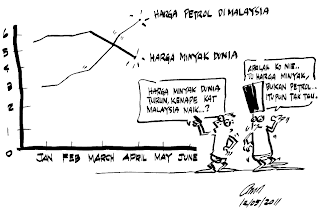 HARGA PETROL DI MALAYSIA
HARGA MINYAK DUNIA
6
5
4
3
2
1
0
JAN FEB MARCH APRIL MAY JUNE
HARGA MINYAK DUNIA
TURUN, KENAPE KAT
MALAYSIA NAIK..?
APALAH KO NIE..
TU HARGA MINYAK,
BUKAN PETROL..
ITUPUN TAK TAU..
12/05/2011